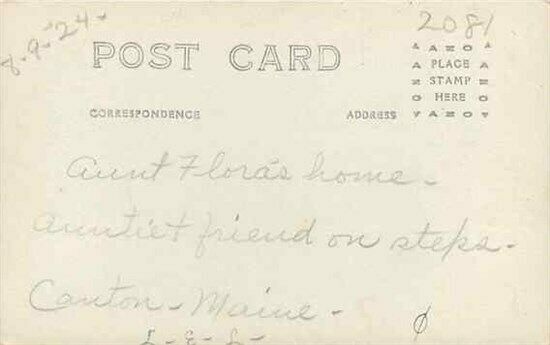 8-9-'24-
2081
POST CARD
AZO
PLACE
STAMP
HERE
AZO
CORRESPONDENCE
ADDRESS
Aunt Flora's home-
Auntie & friend on steps-
Canton-Maine-
L-E-L-